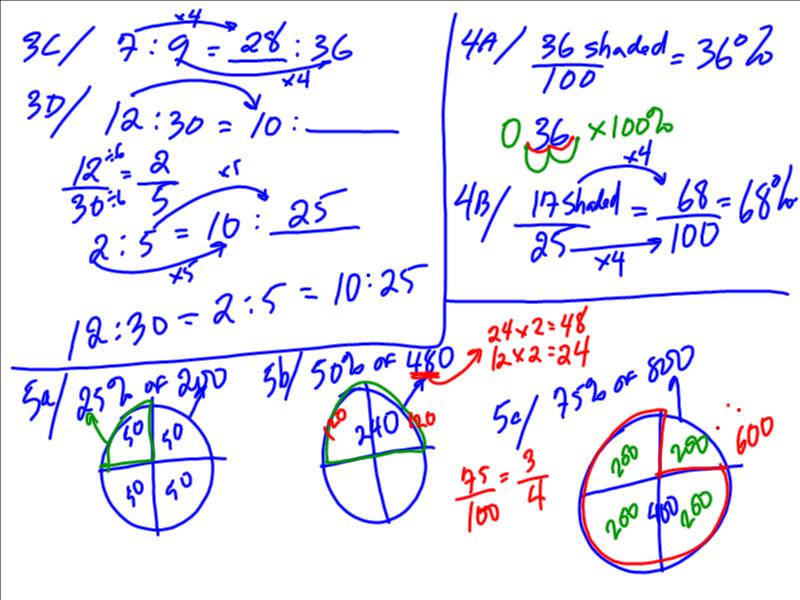 3C/ 7 : 9 = 28 : 36
×4
×4
3D/ 12 : 30 = 10 : ____
12 ÷6 = 2
30 ÷6 5
×5
2 : 5 = 10 : 25
×5
12 : 30 = 2 : 5 = 10 : 25
4A/ 36 shaded = 36%
100
0.36 ×100%
×4
4B/ 17 shaded = 68 = 68%
25 100
×4
5a/ 25% of 200
50 50
50 50
5b/ 50% of 480
24 × 2 = 48
12 × 2 = 24
120 240 120
5c/ 75% of 800
75 = 3
100 4
200 200 600
200 400 200